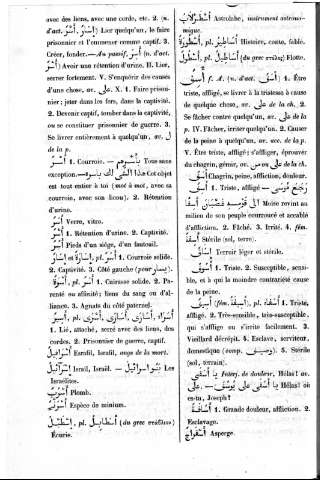 avec des liens, avec une corde, etc. 2. (n.
d'act. أَسْرٌ, إِسَارٌ). Lier quelqu'un, le faire
prisonnier et l'emmener comme captif. 3.
Créer, fonder. — Au passif, أُسِرَ (n. d'act.
أُسْرٌ) Avoir une rétention d'urine. II. Lier,
serrer fortement. V. S'empirer des causes
d'une chose, av. على. X. 1. Faire prison-
nier; jeter dans les fers, dans la captivité.
2. Devenir captif, tomber dans la captivité,
ou se constituer prisonnier de guerre. 3.
Se livrer entièrement à quelqu'un, av. ل
de la p.
أَسْرٌ 1. Courroie. — بأسرهم Tous sans
exception. — هذا الشى لك بأسره Cet objet
est tout entier à toi (mot à mot, avec sa
courroie, avec son licou). 2. Rétention
d'urine.
أُسُرٌ Verre, vitre.
أُسْرٌ 1. Rétention d'urine. 2. Captivité.
أُسُرٌ Pieds d'un siége, d'un fauteuil.
إِسَارٌ et إِسَارَةٌ, pl. أُسُرٌ 1. Courroie solide.
2. Captivité. 3. Côté gauche (pour يسار).
أُسْرَةٌ, pl. أُسَرٌ 1. Cuirasse solide. 2. Pa-
renté ou affinité; liens du sang ou d'al-
liance. 3. Agnats du côté paternel.
أَسِيرٌ, pl. أَسْرَى, أُسَارَى, أَسَارَى, أُسَرَآءُ
1. Lié, attaché, serré avec des liens, des
cordes. 2. Prisonnier de guerre, captif.
اسرافيل Esrafil, Israfil, ange de la mort.
اسرآئيل Israïl, Israël. — بنو اسرآئيل Les
Israélites.
أُسْرُبٌ Plomb.
أُسْرُنْجٌ Espèce de minium.
إِسْطَبْلٌ, pl. أَسَاطِبُ (du grec στάβλον)
Écurie.
أسطرلاب Astrolabe, instrument astrono-
mique.
أُسْطُورَةٌ, pl. أَسَاطِيرُ Histoire, conte, fable.
أُسْطُولٌ, pl. أَسَاطِيلُ (du grec στόλος) Flotte.
أَسِفَ f. A. (n. d'act. أَسَفٌ) 1. Être
triste, affligé, se livrer à la tristesse à cause
de quelque chose, av. على de la ch. 2.
Se fâcher contre quelqu'un, av. على de la
p. IV. Fâcher, irriter quelqu'un. 2. Causer
de la peine à quelqu'un, av. acc. de la p.
V. Être triste, affligé; s'affliger, éprouver
du chagrin, gémir, av. من ou على de la ch.
أَسَفٌ Chagrin, peine, affliction, douleur.
أَسِفٌ 1. Triste, affligé —
Moïse revint au
milieu de son peuple courroucé et accablé
d'affliction. 2. Fâché. 3. Irrité. 4. fém.
أَسِفَةٌ Stérile (sol, terre).
Terroir léger et stérile.
أَسُوفٌ 1. Triste. 2. Susceptible, sensi-
ble, et à qui la moindre contrariété cause
de la peine.
أَسِيفٌ (fém. أَسِيفَةٌ), pl. أُسَفَآءُ 1. Triste,
affligé. 2. Très-sensible, très-susceptible,
qui s'afflige ou s'irrite facilement. 3.
Vieillard décrépit. 4. Esclave, serviteur,
domestique (comp. وصيف). 5. Stérile
(sol, terrain).
يا أسفى Interj. de douleur, Hélas! av.
على. — يا أسفى على يوسف Hélas! où
es-tu, Joseph!
أَسَافَةٌ 1. Grande douleur, affliction. 2.
Esclavage.
اسفراج Asperge.